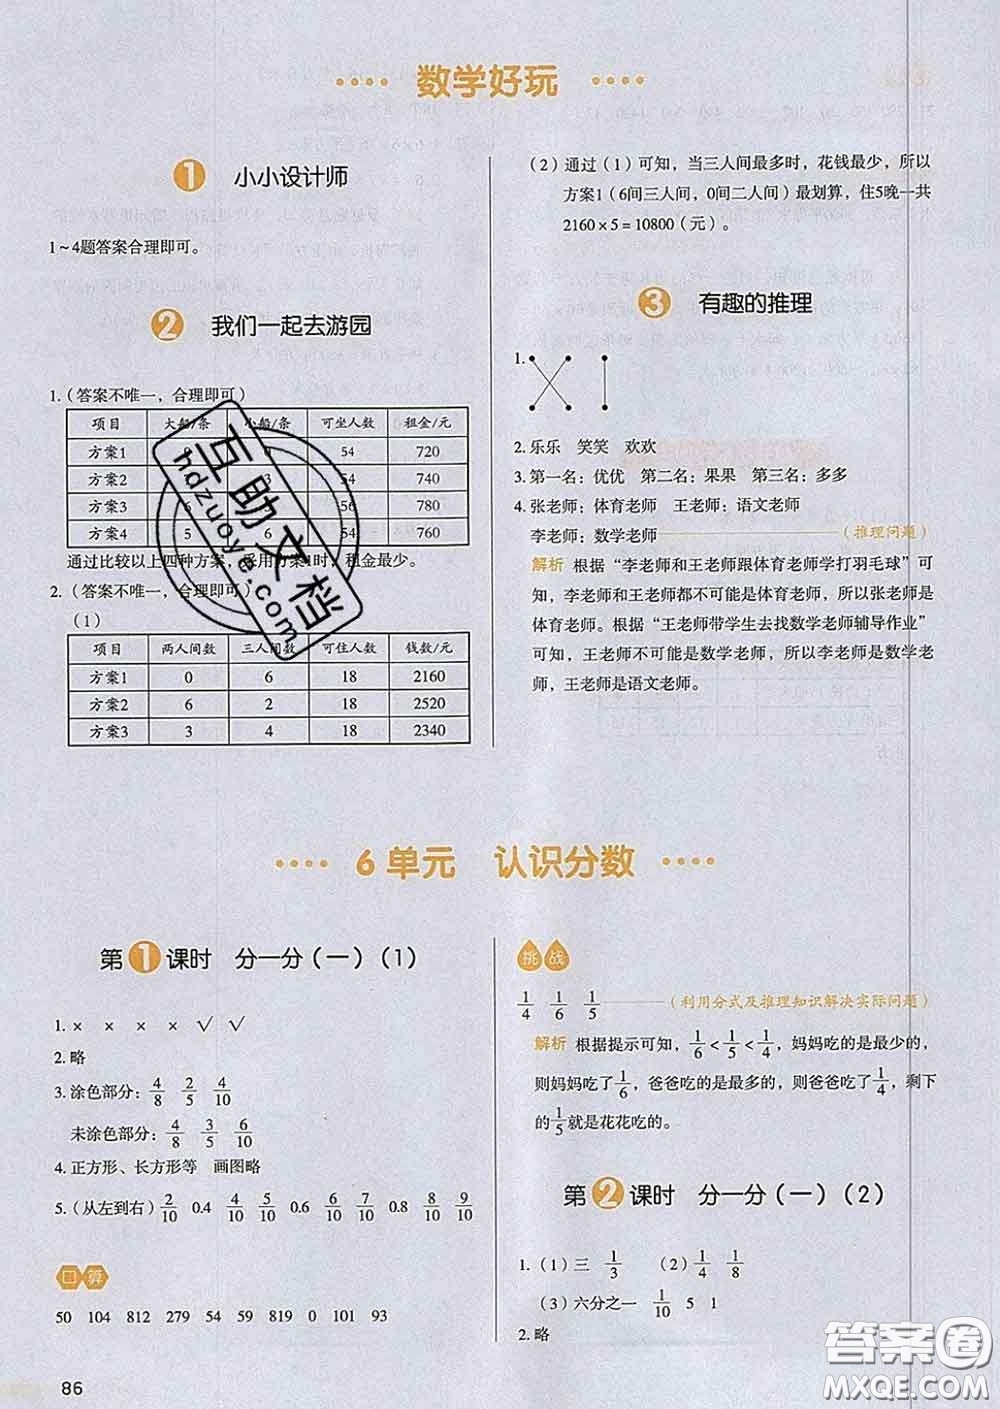 数学好玩
1 小小设计师
1～4题答案合理即可。
2 我们一起去游园
1.（答案不唯一，合理即可）
项目 大船/条 小船/条 可坐人数 租金/元
方案1 54 720
方案2 3 54 740
方案3 6 780
方案4 5 6 54 760
通过比较以上四种方案，采用方案1时，租金最少。
2.（答案不唯一，合理即可）
（1）
项目 两人间数 三人间数 可住人数 钱数/元
方案1 0 6 18 2160
方案2 6 2 18 2520
方案3 3 4 18 2340
（2）通过（1）可知，当三人间最多时，花钱最少，所以
方案1（6间三人间，0间二人间）最划算，住5晚一共
2160×5=10800（元）。
3 有趣的推理
1.
2. 乐乐 笑笑 欢欢
3. 第一名：优优 第二名：果果 第三名：多多
4. 张老师：体育老师 王老师：语文老师
李老师：数学老师（推理问题）
解析 根据“李老师和王老师跟体育老师学打羽毛球”可
知，李老师和王老师都不可能是体育老师，所以张老师是
体育老师。根据“王老师带学生去找数学老师辅导作业”
可知，王老师不可能是数学老师，所以李老师是数学老
师，王老师是语文老师。
6 单元 认识分数
第1课时 分一分（一）（1）
1. × × × × √ √
2. 略
3. 涂色部分：4/8 2/5 4/10
未涂色部分：4/8 3/5 6/10
4. 正方形、长方形等 画图略
5.（从左到右）2/10 0.4 4/10 5/10 0.6 6/10 7/10 0.8 8/10 9/10
口算
50 104 812 279 54 59 819 0 101 93
挑战
1/4 1/6 1/5（利用分式及推理知识解决实际问题）
解析 根据提示可知，1/6<1/5<1/4，妈妈吃的是最少的，
则妈妈吃了1/6，爸爸吃的是最多的，则爸爸吃了1/4，剩下
的1/5就是花花吃的。
第2课时 分一分（一）（2）
1.（1）三 1/3 （2）1/4 1/8
（3）六分之一 1/10 5 1
2. 略
86
互助文档
hdzuoye.com
答案圈
MXQE.COM